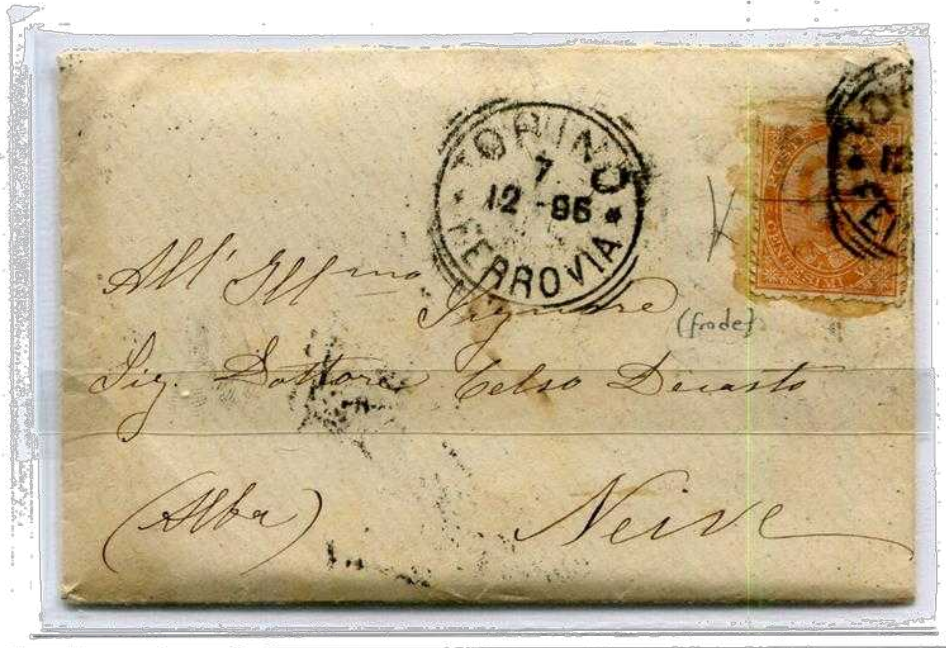 TORINO
7
12 - 96
FERROVIA
All' Illmo
Signore
(frode)
Sig. Dottore Celso Decasto
(Alba)
Neive